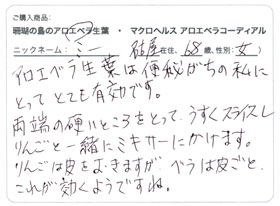 ご購入商品:
珊瑚の島のアロエベラ生葉 ・ マクロヘルス アロエベラコーディアル
ニックネーム: ミー 名古屋在住、68歳、性別:( 女 )
アロエベラ生葉は便秘がちの私に
とってとても有効です。
両端の硬いところをとって、うすくスライスし
りんごと一緒にミキサーにかけます。
りんごは皮をむきますが、ベラは皮ごと、
これが効くようですね。